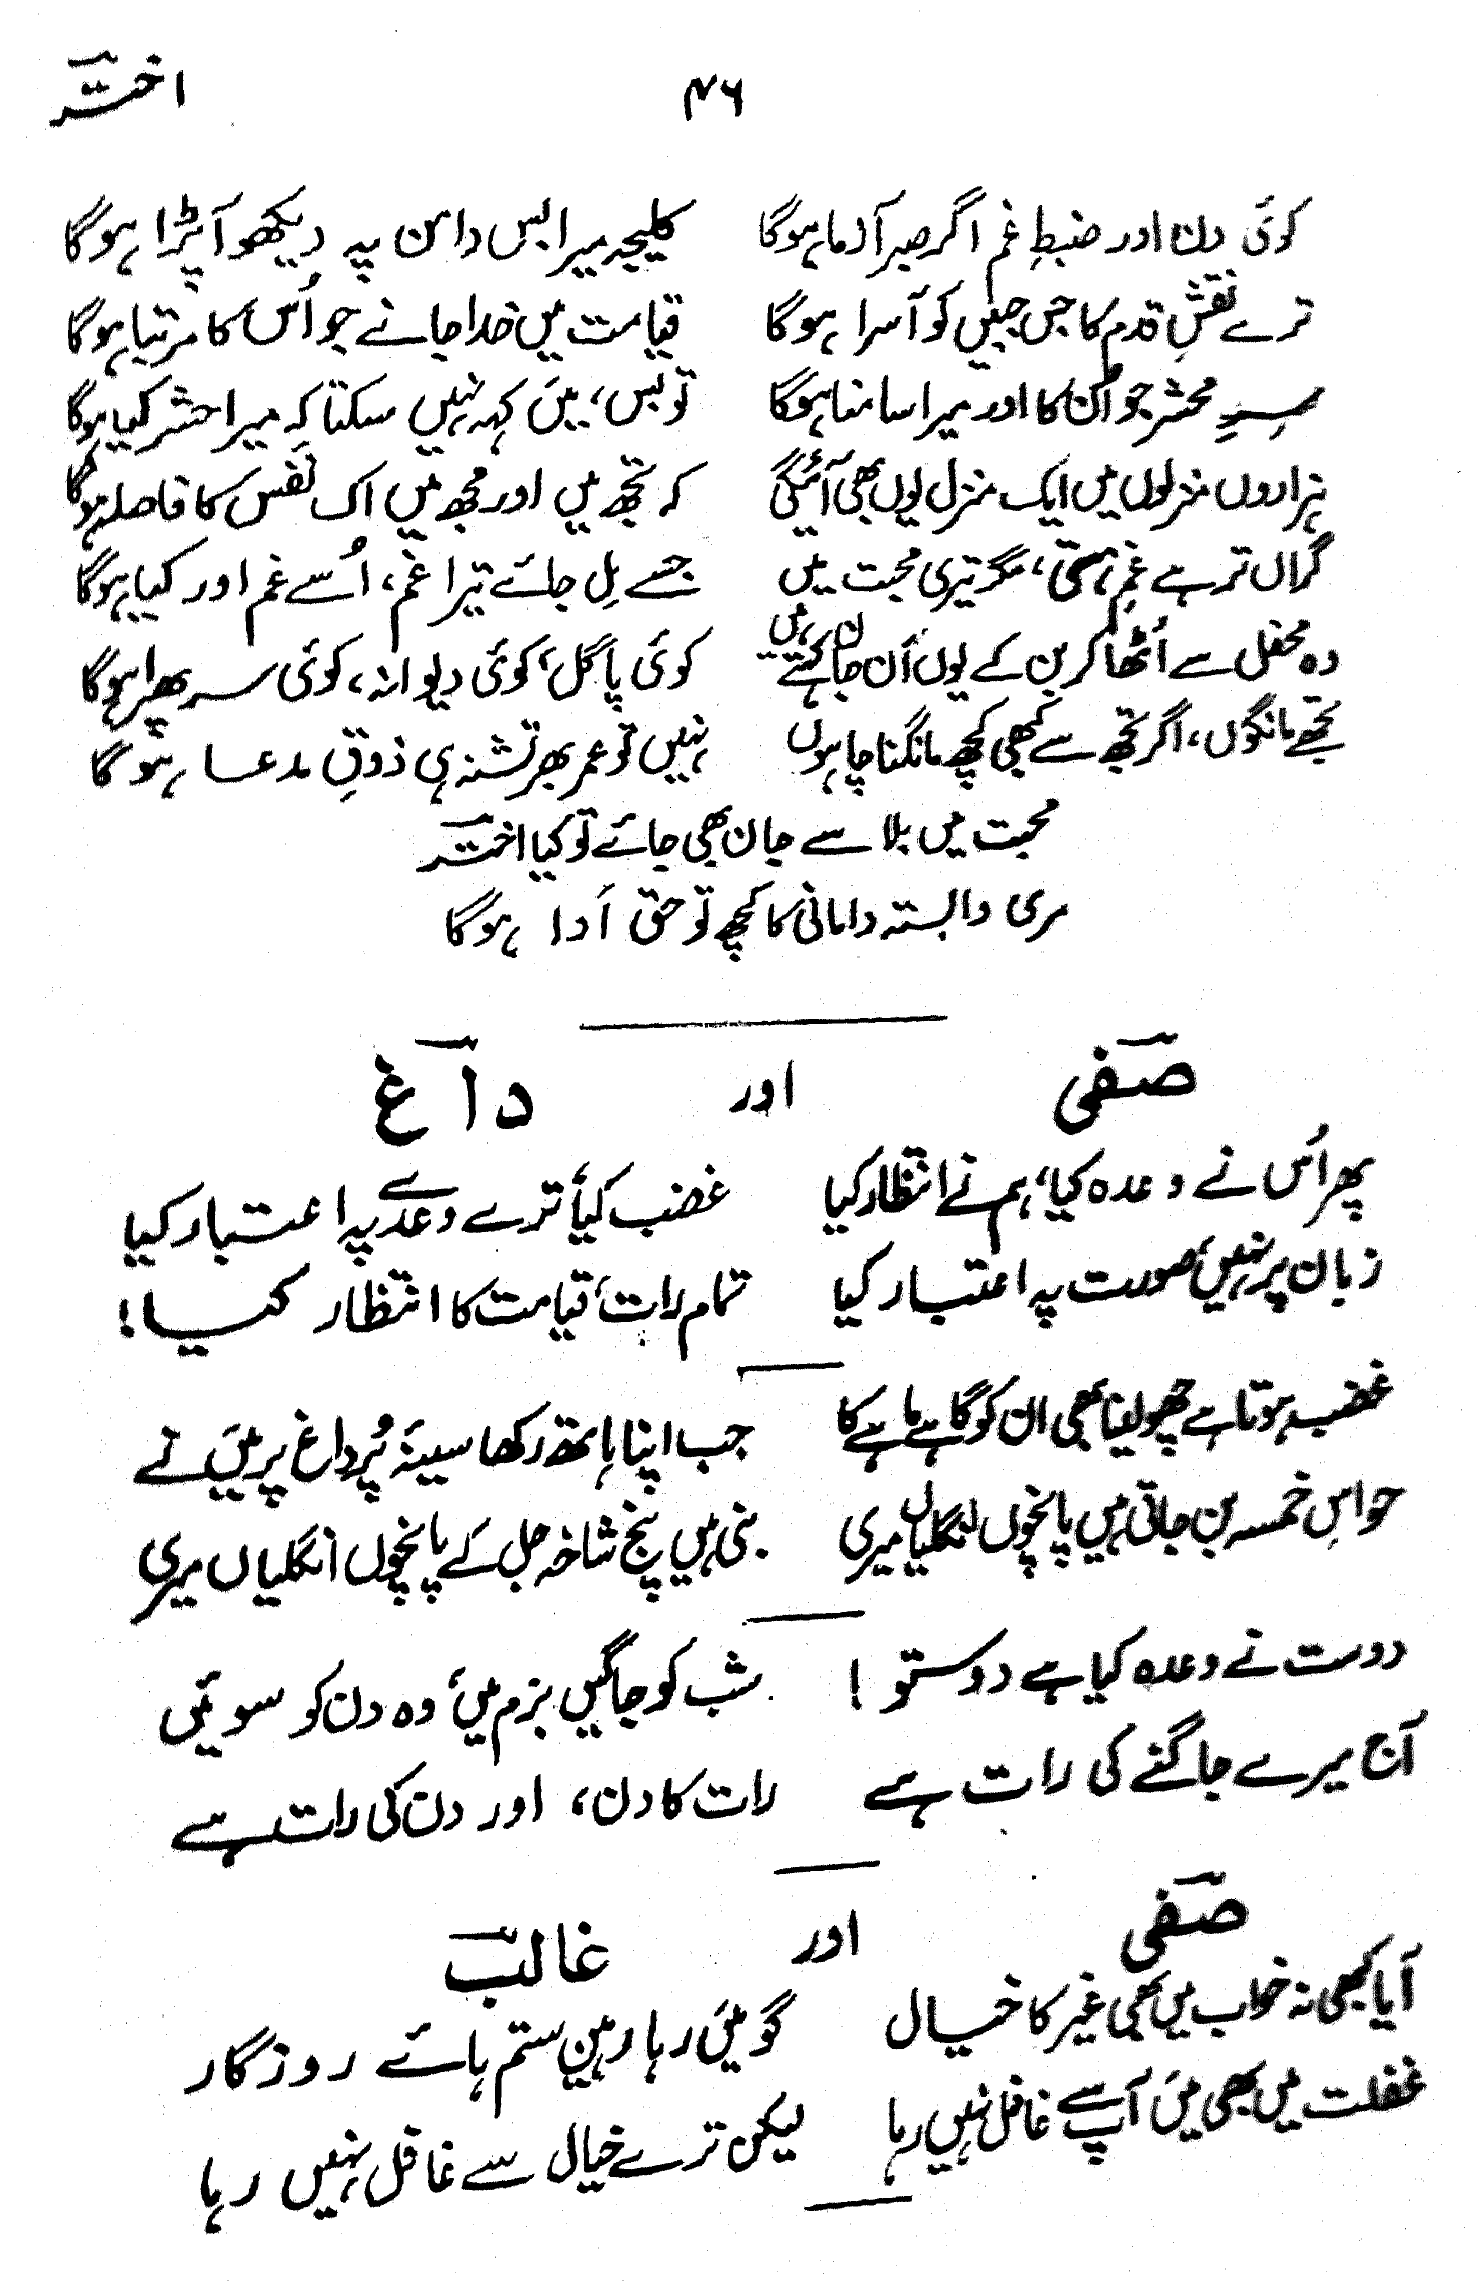 اختر
۴۶
کوئی دن اور ضبطِ غم اگر صبر آزما ہوگا کلیجہ میرا بس دامن پہ دیکھو آ پڑا ہوگا
ترے نقشِ قدم کا جس جبیں کو آسرا ہوگا قیامت میں خدا جانے جو اُس کا مرتبا ہوگا
سرِ محشر جو اُن کا اور میرا سامنا ہوگا تو بس، میں کہہ نہیں سکتا کہ میرا حشر کیا ہوگا
ہزاروں منزلوں میں ایک منزل یوں بھی آئیگی کہ تجھ میں اور مجھ میں اک نفس کا فاصلہ ہوگا
گراں تر ہے غمِ ہستی، مگر تیری محبت میں جسے مِل جائے تیرا غم، اُسے غم اور کیا ہوگا
وہ محفل سے اُٹھا کر بن کے یوں اَن جان کہتے ہیں کوئی پاگل، کوئی دیوانہ، کوئی سر پھرا ہوگا
تجھے مانگوں، اگر تجھ سے کبھی کچھ مانگنا چاہوں نہیں تو عمر بھر تشنہ ہی ذوقِ مدعا ہوگا
محبت میں بلا سے جان بھی جائے تو کیا اختر
مری وابستہ دامانی کا کچھ تو حق اَدا ہوگا
صفی اور داغ
پھر اُس نے وعدہ کیا، ہم نے انتظار کیا غضب کیا ترے وعدے پہ اعتبار کیا
زبان پر نہیں صورت پہ اعتبار کیا تمام رات، قیامت کا انتظار کیا!
غضب ہوتا ہے چھولینا بھی ان کو گاہے ماہے کا جب اپنا ہاتھ رکھا سینۂ پُر داغ پر میں نے
حواسِ خمسہ بن جاتی ہیں پانچوں انگلیاں میری بنی ہیں پنج شاخہ جل کے پانچوں انگلیاں میری
دوست نے وعدہ کیا ہے دوستو! شب کو جاگیں بزم میں، وہ دن کو سوئیں
آج میرے جاگنے کی رات ہے رات کا دن، اور دن کی رات ہے
صفی اور غالب
آیا کبھی نہ خواب میں بھی غیر کا خیال گو میں رہا رہینِ ستم ہائے روزگار
غفلت میں بھی میں آپ سے غافل نہیں رہا لیکن ترے خیال سے غافل نہیں رہا